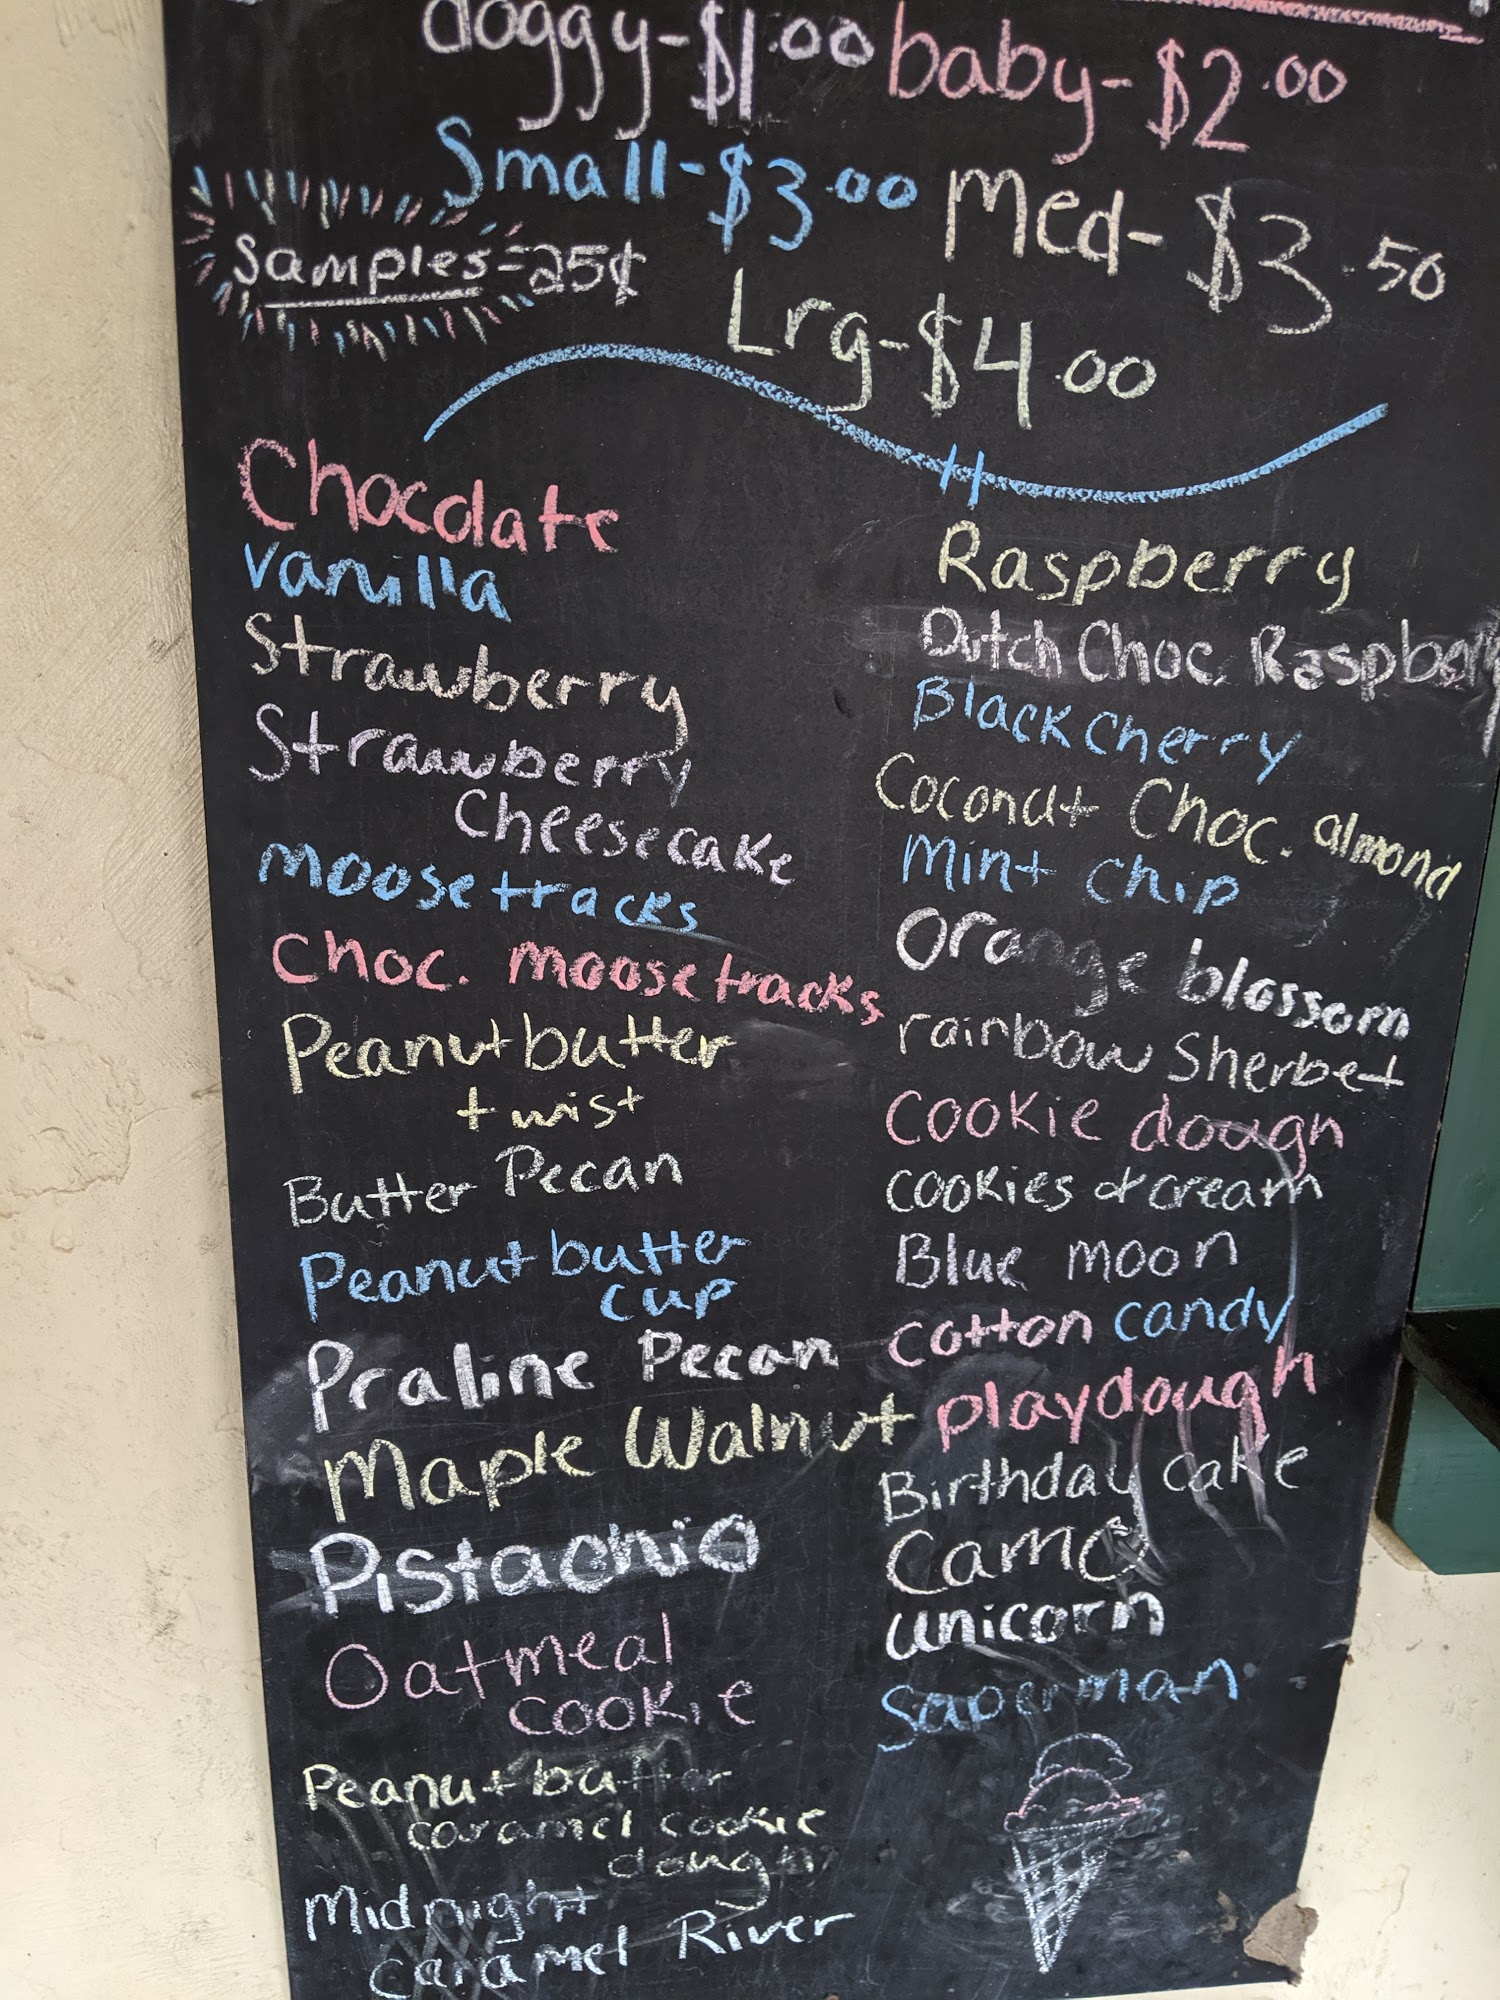 doggy-$1.00 baby-$2.00
Small-$3.00 Med-$3.50
Samples-25¢
Lrg-$4.00
Chocolate
vanilla
Strawberry
Strawberry
Cheesecake
moosetracks
Choc. moosetracks
Peanutbutter
twist
Butter Pecan
Peanutbutter
cup
Praline Pecan
Maple Walnut
Pistachio
Oatmeal
cookie
Peanutbutter
caramel cookie
dough
Midnight
caramel River
Raspberry
Dutch Choc. Raspberry
Black cherry
Coconut Choc. almond
mint chip
Orange blossom
rainbow Sherbet
cookie dough
cookies & cream
Blue moon
cotton candy
playdough
Birthday cake
Camo
unicorn
Superman